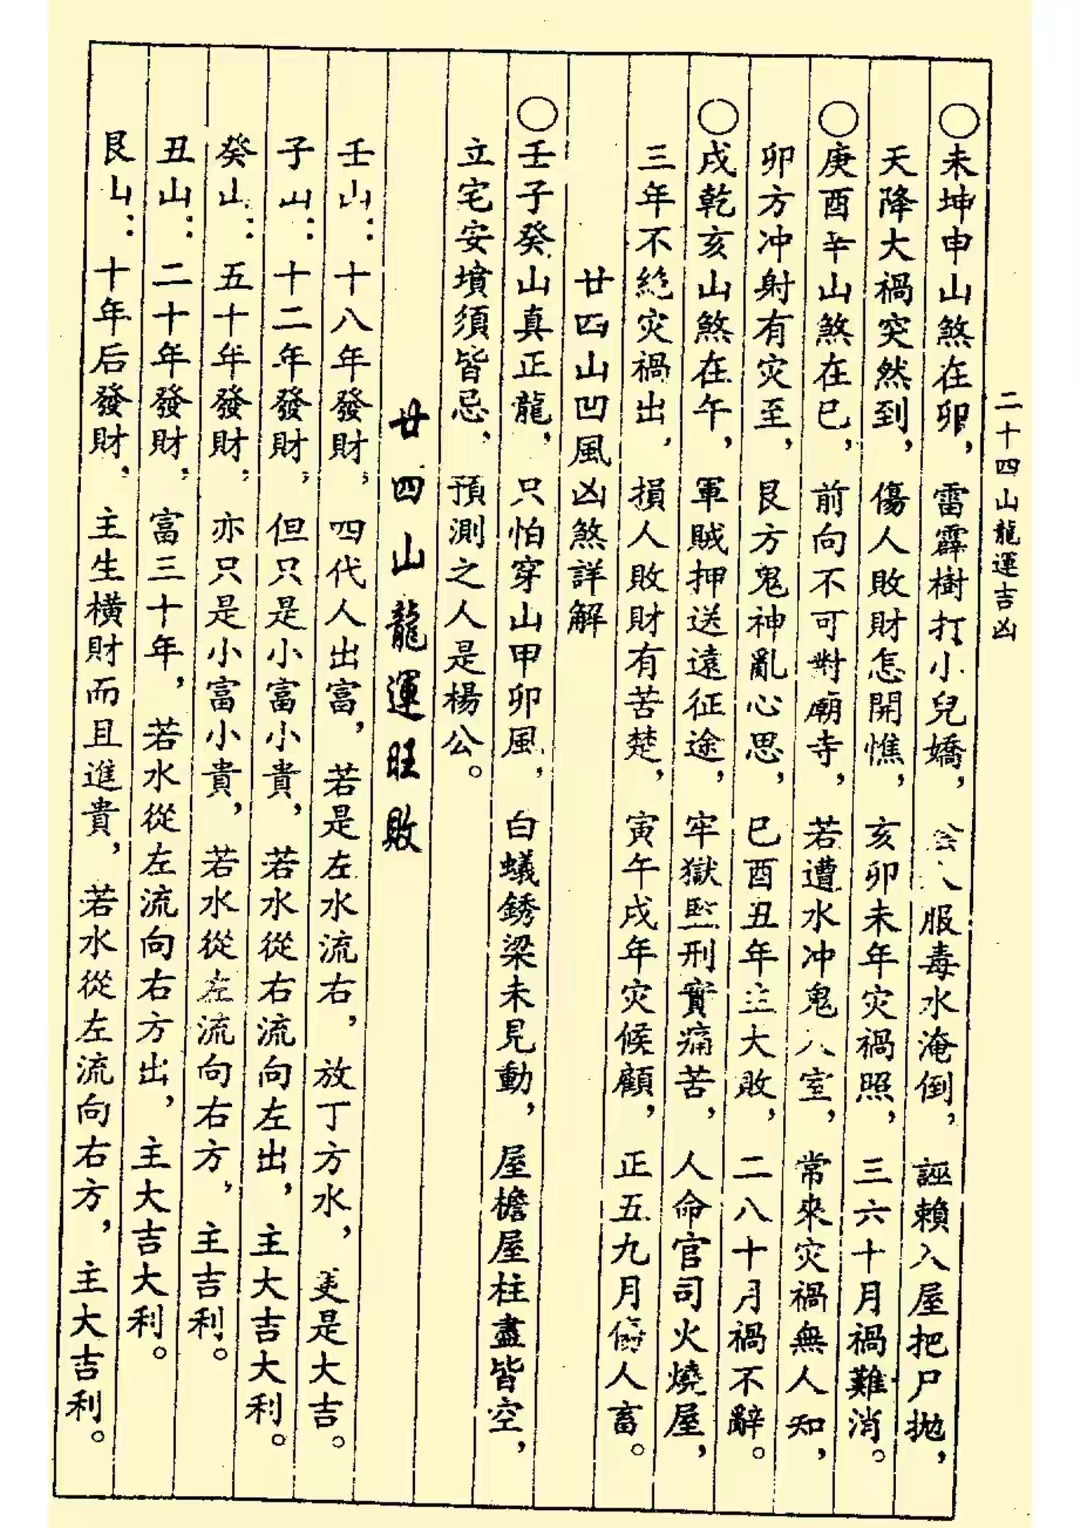 二十四山龍運吉凶
○未坤申山煞在卯，雷霹樹打小兒嬌，服毒水淹倒，誣賴入屋把尸拋，
天降大禍突然到，傷人敗財怎開憔，亥卯未年灾禍照，三六十月禍難消。
○庚酉辛山煞在巳，前向不可對廟寺，若遭水冲鬼入室，常來灾禍無人知，
卯方冲射有灾至，艮方鬼神亂心思，巳酉丑年主大敗，二八十月禍不辭。
○戌乾亥山煞在午，軍賊押送遠征途，牢獄監刑實痛苦，人命官司火燒屋，
三年不絶灾禍出，損人敗財有苦楚，寅午戌年灾候顧，正五九月傷人畜。
廿四山凹風凶煞詳解
○壬子癸山真正龍，只怕穿山甲卯風，白蟻銹梁未見動，屋檐屋柱盡皆空，
立宅安墳須皆忌，預測之人是楊公。
廿四山龍運旺敗
壬山：十八年發財，四代人出富，若是左水流右，放丁方水，更是大吉。
子山：十二年發財，但只是小富小貴，若水從右流向左出，主大吉大利。
癸山：五十年發財，亦只是小富小貴，若水從左流向右方，主吉利。
丑山：二十年發財，富三十年，若水從左流向右方出，主大吉大利。
艮山：十年后發財，主生橫財而且進貴，若水從左流向右方，主大吉利。